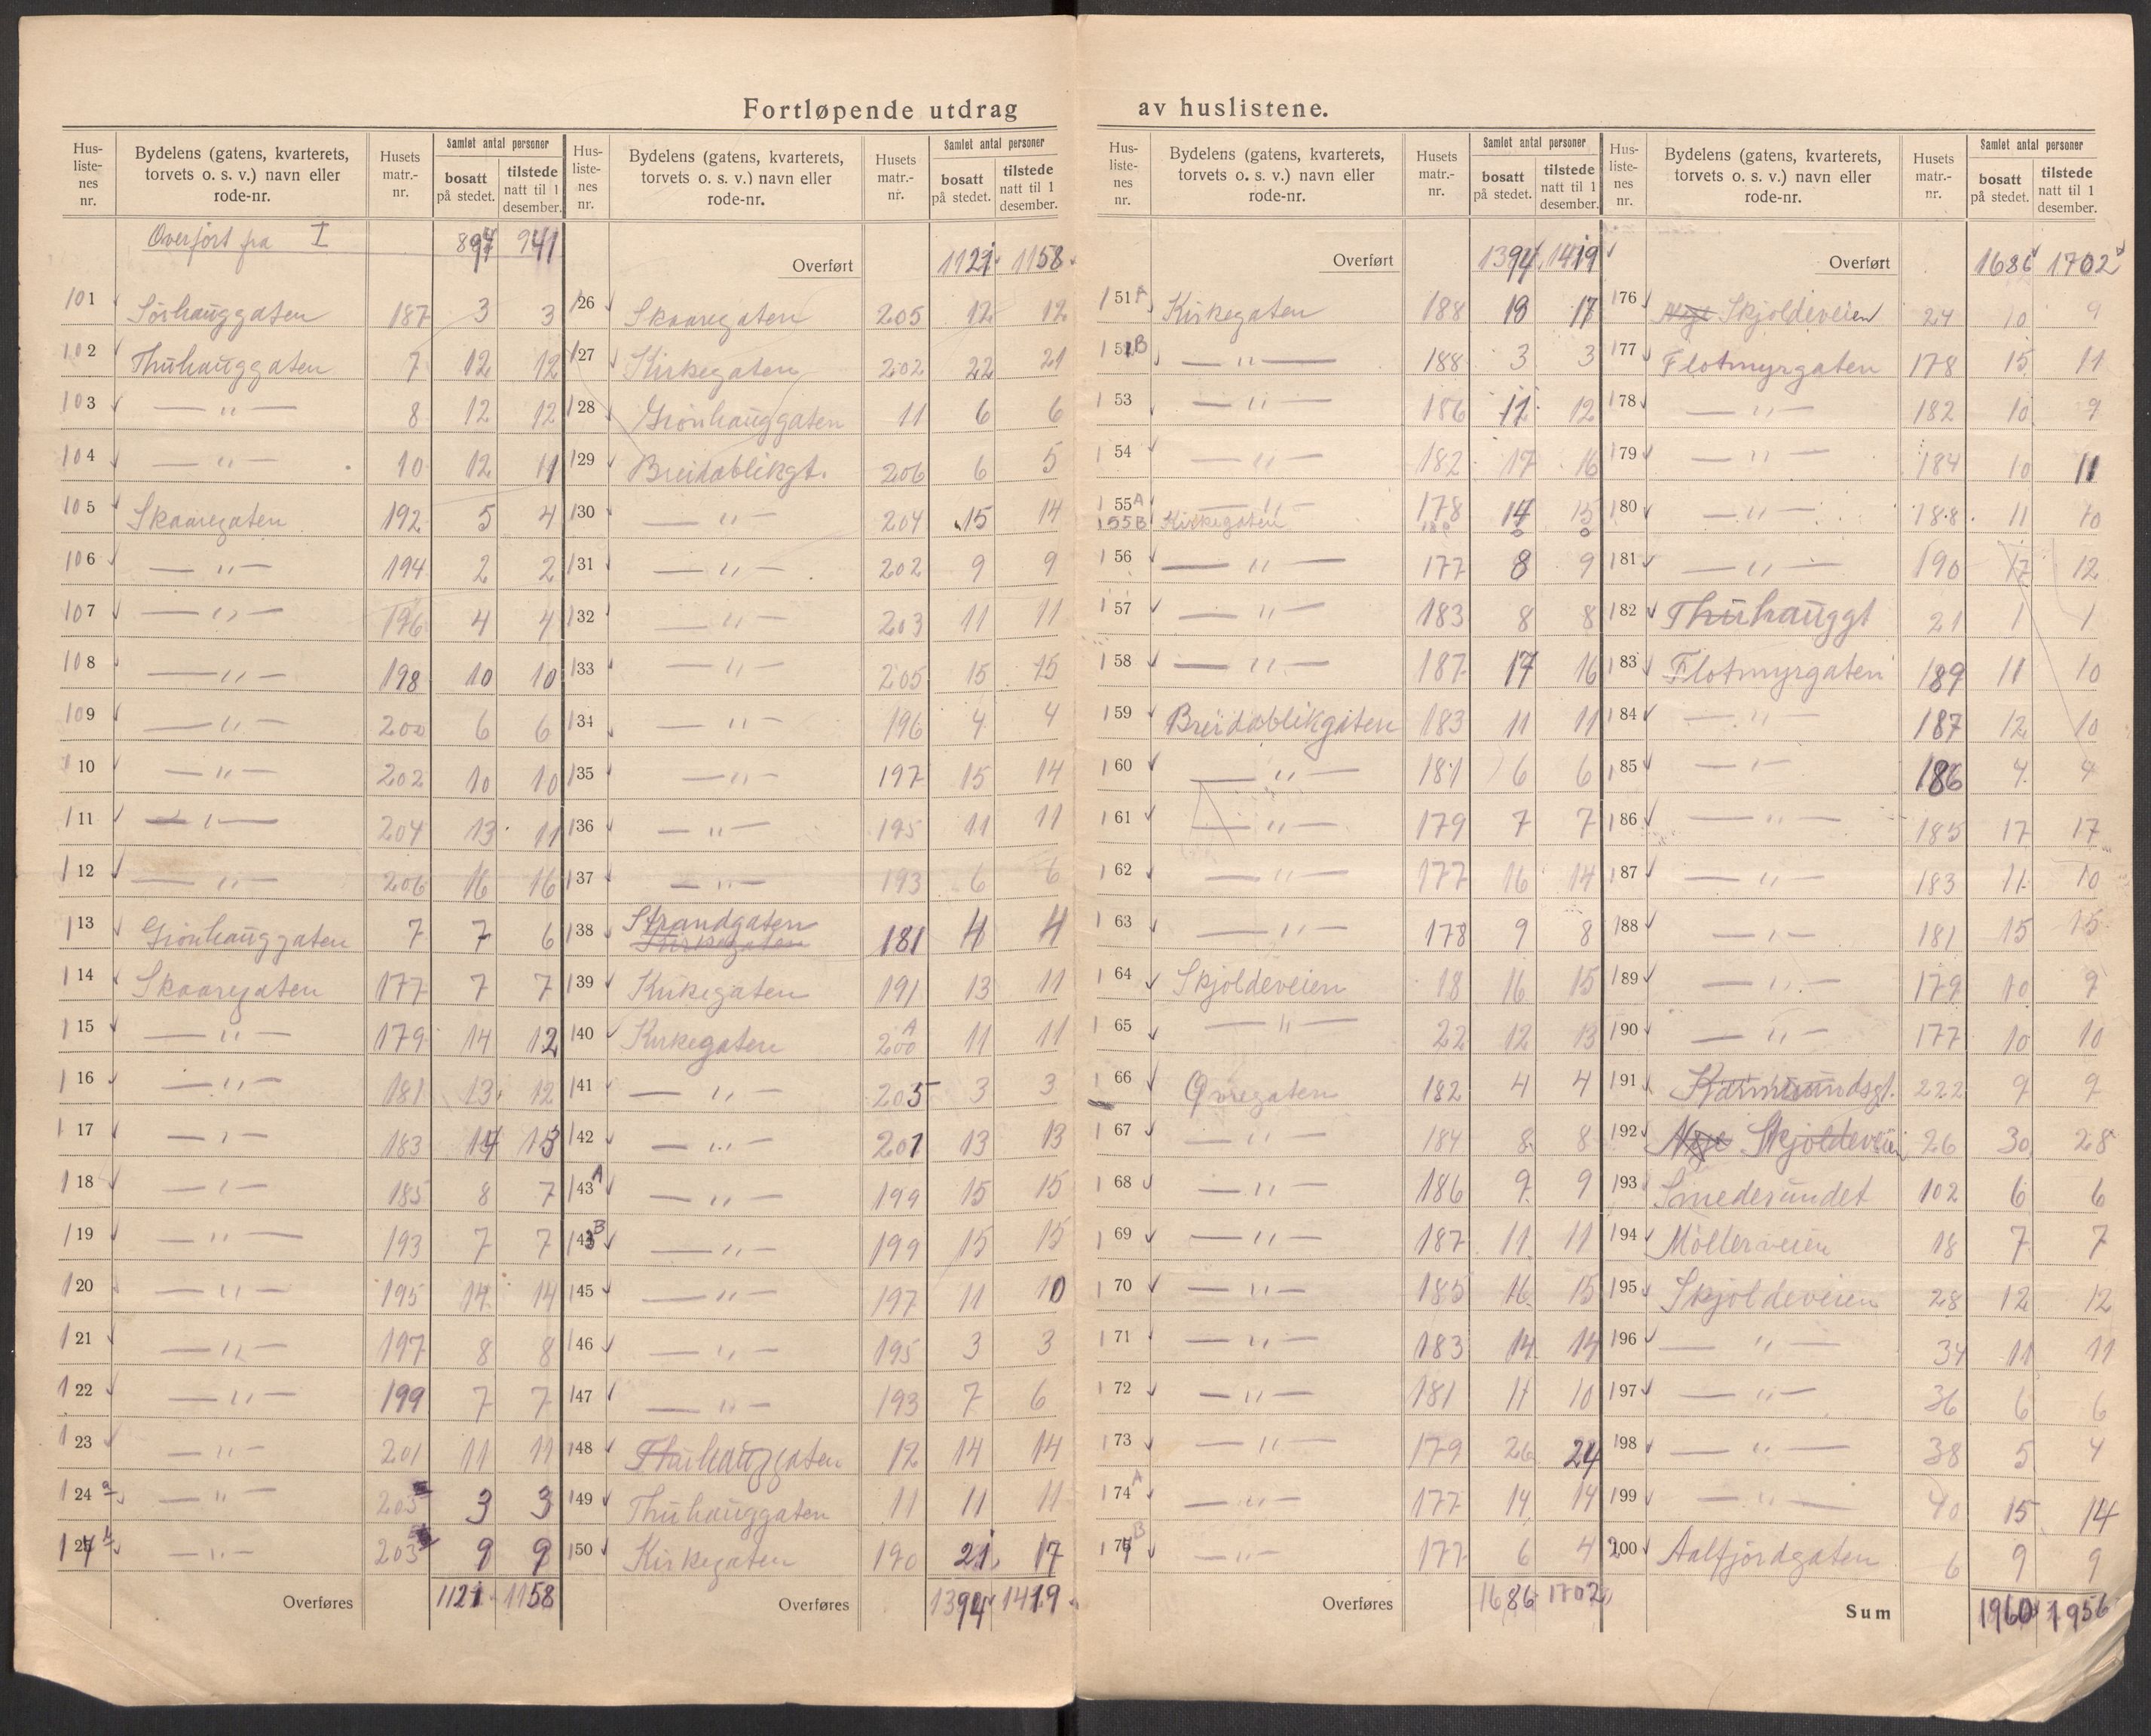 Fortløpende utdrag av huslistene.
Hus-listenes nr. | Bydelens (gatens, kvarterets, torvets o. s. v.) navn eller rode-nr. | Husets matr.-nr. | Samlet antal personer bosatt på stedet. | tilstede natt til 1 desember.
Overført fra I 894 941
101 Sørhauggaten 187 3 3
102 Thuhauggaten 7 12 12
103 — „ — 8 12 12
104 — „ — 10 12 11
105 Skaaregaten 192 5 4
106 — „ — 194 2 2
107 — „ — 196 4 4
108 — „ — 198 10 10
109 — „ — 200 6 6
110 — „ — 202 10 10
111 — „ — 204 13 11
112 — „ — 206 16 16
113 Grønhauggaten 7 7 6
114 Skaaregaten 177 7 7
115 — „ — 179 14 12
116 — „ — 181 13 12
117 — „ — 183 14 13
118 — „ — 185 8 7
119 — „ — 193 7 7
120 — „ — 195 14 14
121 — „ — 197 8 8
122 — „ — 199 7 7
123 — „ — 201 11 11
124 a — „ — 203 3 3
124 b — „ — 203 9 9
Overføres 1121 1158
Hus-listenes nr. | Bydelens (gatens, kvarterets, torvets o. s. v.) navn eller rode-nr. | Husets matr.-nr. | Samlet antal personer bosatt på stedet. | tilstede natt til 1 desember.
Overført 1121 1158
126 Skaaregaten 205 12 12
127 Kirkegaten 202 22 21
128 Grønhauggaten 11 6 6
129 Breidablikgt. 206 6 5
130 — „ — 204 15 14
131 — „ — 202 9 9
132 — „ — 203 11 11
133 — „ — 205 15 15
134 — „ — 196 4 4
135 — „ — 197 15 14
136 — „ — 195 11 11
137 — „ — 193 6 6
138 Strandgaten Kirkegaten 181 4 4
139 Kirkegaten 191 13 11
140 Kirkegaten 200 A 11 11
141 — „ — 205 3 3
142 — „ — 201 13 13
143 A — „ — 199 15 15
143 B — „ — 199 15 15
145 — „ — 197 11 10
146 — „ — 195 3 3
147 — „ — 193 7 6
148 Thuhauggaten 12 14 14
149 Thuhauggaten 11 11 11
150 Kirkegaten 190 21 17
Overføres 1394 1419
Hus-listenes nr. | Bydelens (gatens, kvarterets, torvets o. s. v.) navn eller rode-nr. | Husets matr.-nr. | Samlet antal personer bosatt på stedet. | tilstede natt til 1 desember.
Overført 1394 1419
151 A Kirkegaten 188 19 17
151 B — „ — 188 3 3
153 — „ — 186 12
154 — „ — 182 17 16
155 A — „ — 178 14 15
155 B Kirkegaten 180 0 0
156 — „ — 177 8 9
157 — „ — 183 8 8
158 — „ — 187 17 16
159 Breidablikgaten 183 11 11
160 — „ — 181 6 6
161 — „ — 179 7 7
162 — „ — 177 16 14
163 — „ — 178 9 8
164 Skjoldeveien 18 16 15
165 — „ — 22 12 13
166 Øvregaten 182 4 4
167 — „ — 184 8 8
168 — „ — 186 9 9
169 — „ — 187 11 11
170 — „ — 185 16 15
171 — „ — 183 14 14
172 — „ — 181 11 10
173 — „ — 179 26 24
174 A — „ — 177 14 14
174 B — „ — 177 6 4
Overføres 1686 1702
Hus-listenes nr. | Bydelens (gatens, kvarterets, torvets o. s. v.) navn eller rode-nr. | Husets matr.-nr. | Samlet antal personer bosatt på stedet. | tilstede natt til 1 desember.
Overført 1686 1702
176 Skjoldeveien 24 10 9
177 Flotmyrgaten 178 15 11
178 — „ — 182 10 9
179 — „ — 184 10 11
180 — „ — 188 11 10
181 — „ — 190 17 12
182 Thuhauggt 21 1 1
183 Flotmyrgaten 189 11 10
184 — „ — 187 12 10
185 — „ — 186 4 4
186 — „ — 185 17 17
187 — „ — 183 11 10
188 — „ — 181 15 15
189 — „ — 179 10 9
190 — „ — 177 10 10
191 Karmsundsgt. 222 9 9
192 Skjoldeveien 26 30 28
193 Smedesundet 102 6 6
194 Møllerveien 18 7 7
195 Skjoldeveien 28 12 12
196 — „ — 34 11 11
197 — „ — 36 6 6
198 — „ — 38 5 4
199 — „ — 40 15 14
200 Aalfjordgaten 6 9 9
Sum 1960 1956